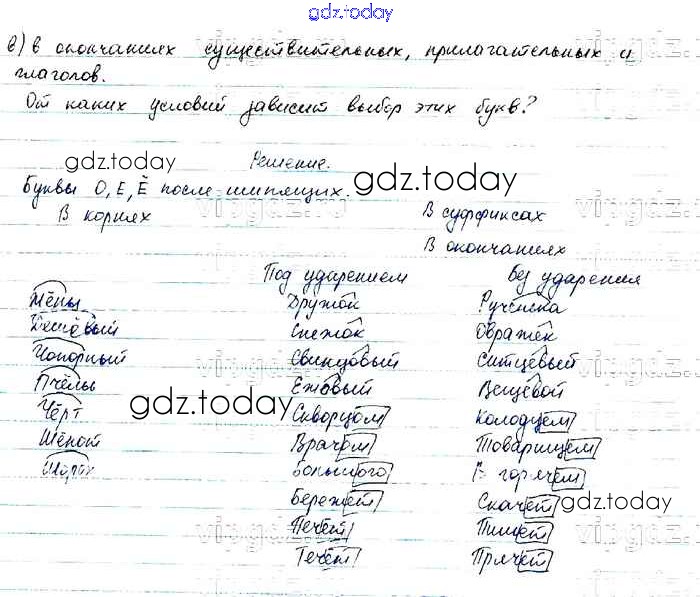 gdz.today
в) в окончаниях существительных, прилагательных и
глаголов.
От каких условий зависит выбор этих букв?
gdz.today
Решение.
Буквы О, Е, Ё после шипящих.
gdz.today
В корнях
В суффиксах
В окончаниях
Под ударением
Без ударения
Жёны Дружок Ручонка
Дешёвый Снежок Овражек
Чопорный Свинцовый Ситцевый
Пчёлы Ежовый Вещевой
gdz.today
Чёрт Скворцом Колодцем
Шёпот Врачом Товарищем
Шорох Большого В горячем
Бережёт Скачет
gdz.today
Печёт Пишет
Течёт Прячет